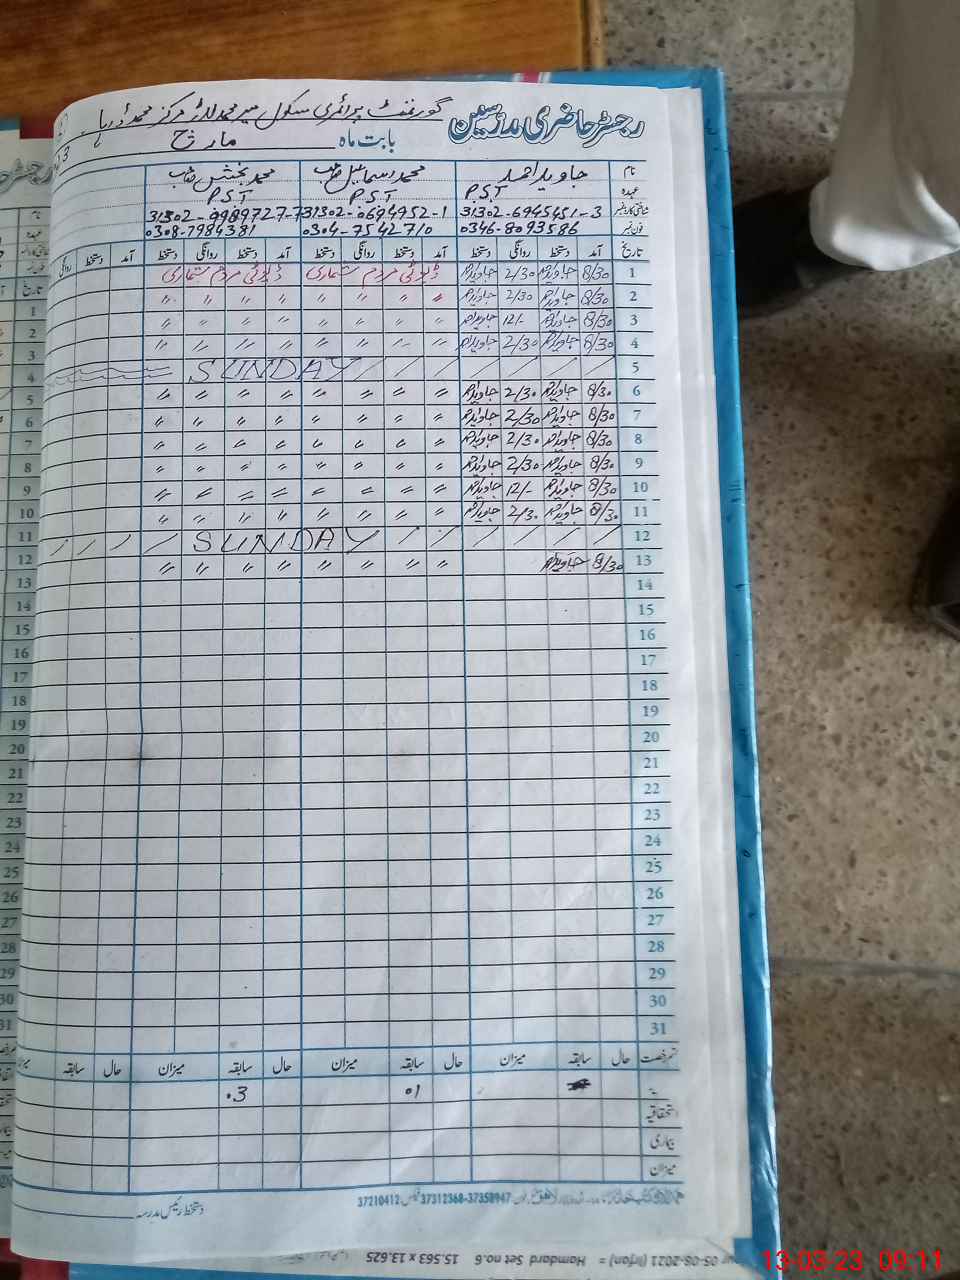 گورنمنٹ پرائمری سکول میر محمد لاڑ مرکز محمد
رجسٹر حاضری مدرسین
بابت ماہ مارچ
نام جاوید احمد محمد اسماعیل صاحب محمد بخش صاحب
عہدہ P.S.T P.S.T P.S.T
شناختی کارڈ نمبر 31302-6945451-3 31302-0694952-1 31302-9989727-7
فون نمبر 0346-8093586 0304-7542710 0308-7984381
تاریخ آمد دستخط روانگی دستخط آمد دستخط روانگی دستخط آمد دستخط روانگی دستخط آمد دستخط روانگی
1 8/30 جاوید احمد 2/30 جاوید احمد ڈیوٹی مردم شماری ڈیوٹی مردم شماری
2 8/30 جاوید احمد 2/30 جاوید احمد 〃 〃 〃 〃 〃 〃 〃 〃
3 8/30 جاوید احمد 12/- جاوید احمد 〃 〃 〃 〃 〃 〃 〃 〃
4 8/30 جاوید احمد 2/30 جاوید احمد 〃 〃 〃 〃 〃 〃 〃 〃
5 SUNDAY
6 8/30 جاوید احمد 2/30 جاوید احمد 〃 〃 〃 〃 〃 〃 〃 〃
7 8/30 جاوید احمد 2/30 جاوید احمد 〃 〃 〃 〃 〃 〃 〃 〃
8 8/30 جاوید احمد 2/30 جاوید احمد 〃 〃 〃 〃 〃 〃 〃 〃
9 8/30 جاوید احمد 2/30 جاوید احمد 〃 〃 〃 〃 〃 〃 〃 〃
10 8/30 جاوید احمد 12/- جاوید احمد 〃 〃 〃 〃 〃 〃 〃 〃
11 8/30 جاوید احمد 2/30 جاوید احمد 〃 〃 〃 〃 〃 〃 〃 〃
12 SUNDAY
13 8/30 جاوید احمد 〃 〃 〃 〃 〃 〃 〃 〃
14
15
16
17
18
19
20
21
22
23
24
25
26
27
28
29
30
31
حال سابقہ میزان حال سابقہ میزان حال سابقہ میزان حال سابقہ
01 03
استحقاقیہ
بیماری
میزان
37210412 فیکس 37312368-37358947
دستخط رئیس مدرسہ
05-08-2021 (Irfan) = Hamdard Set no.6 15.563 x 13.625
13-03-23 09:11